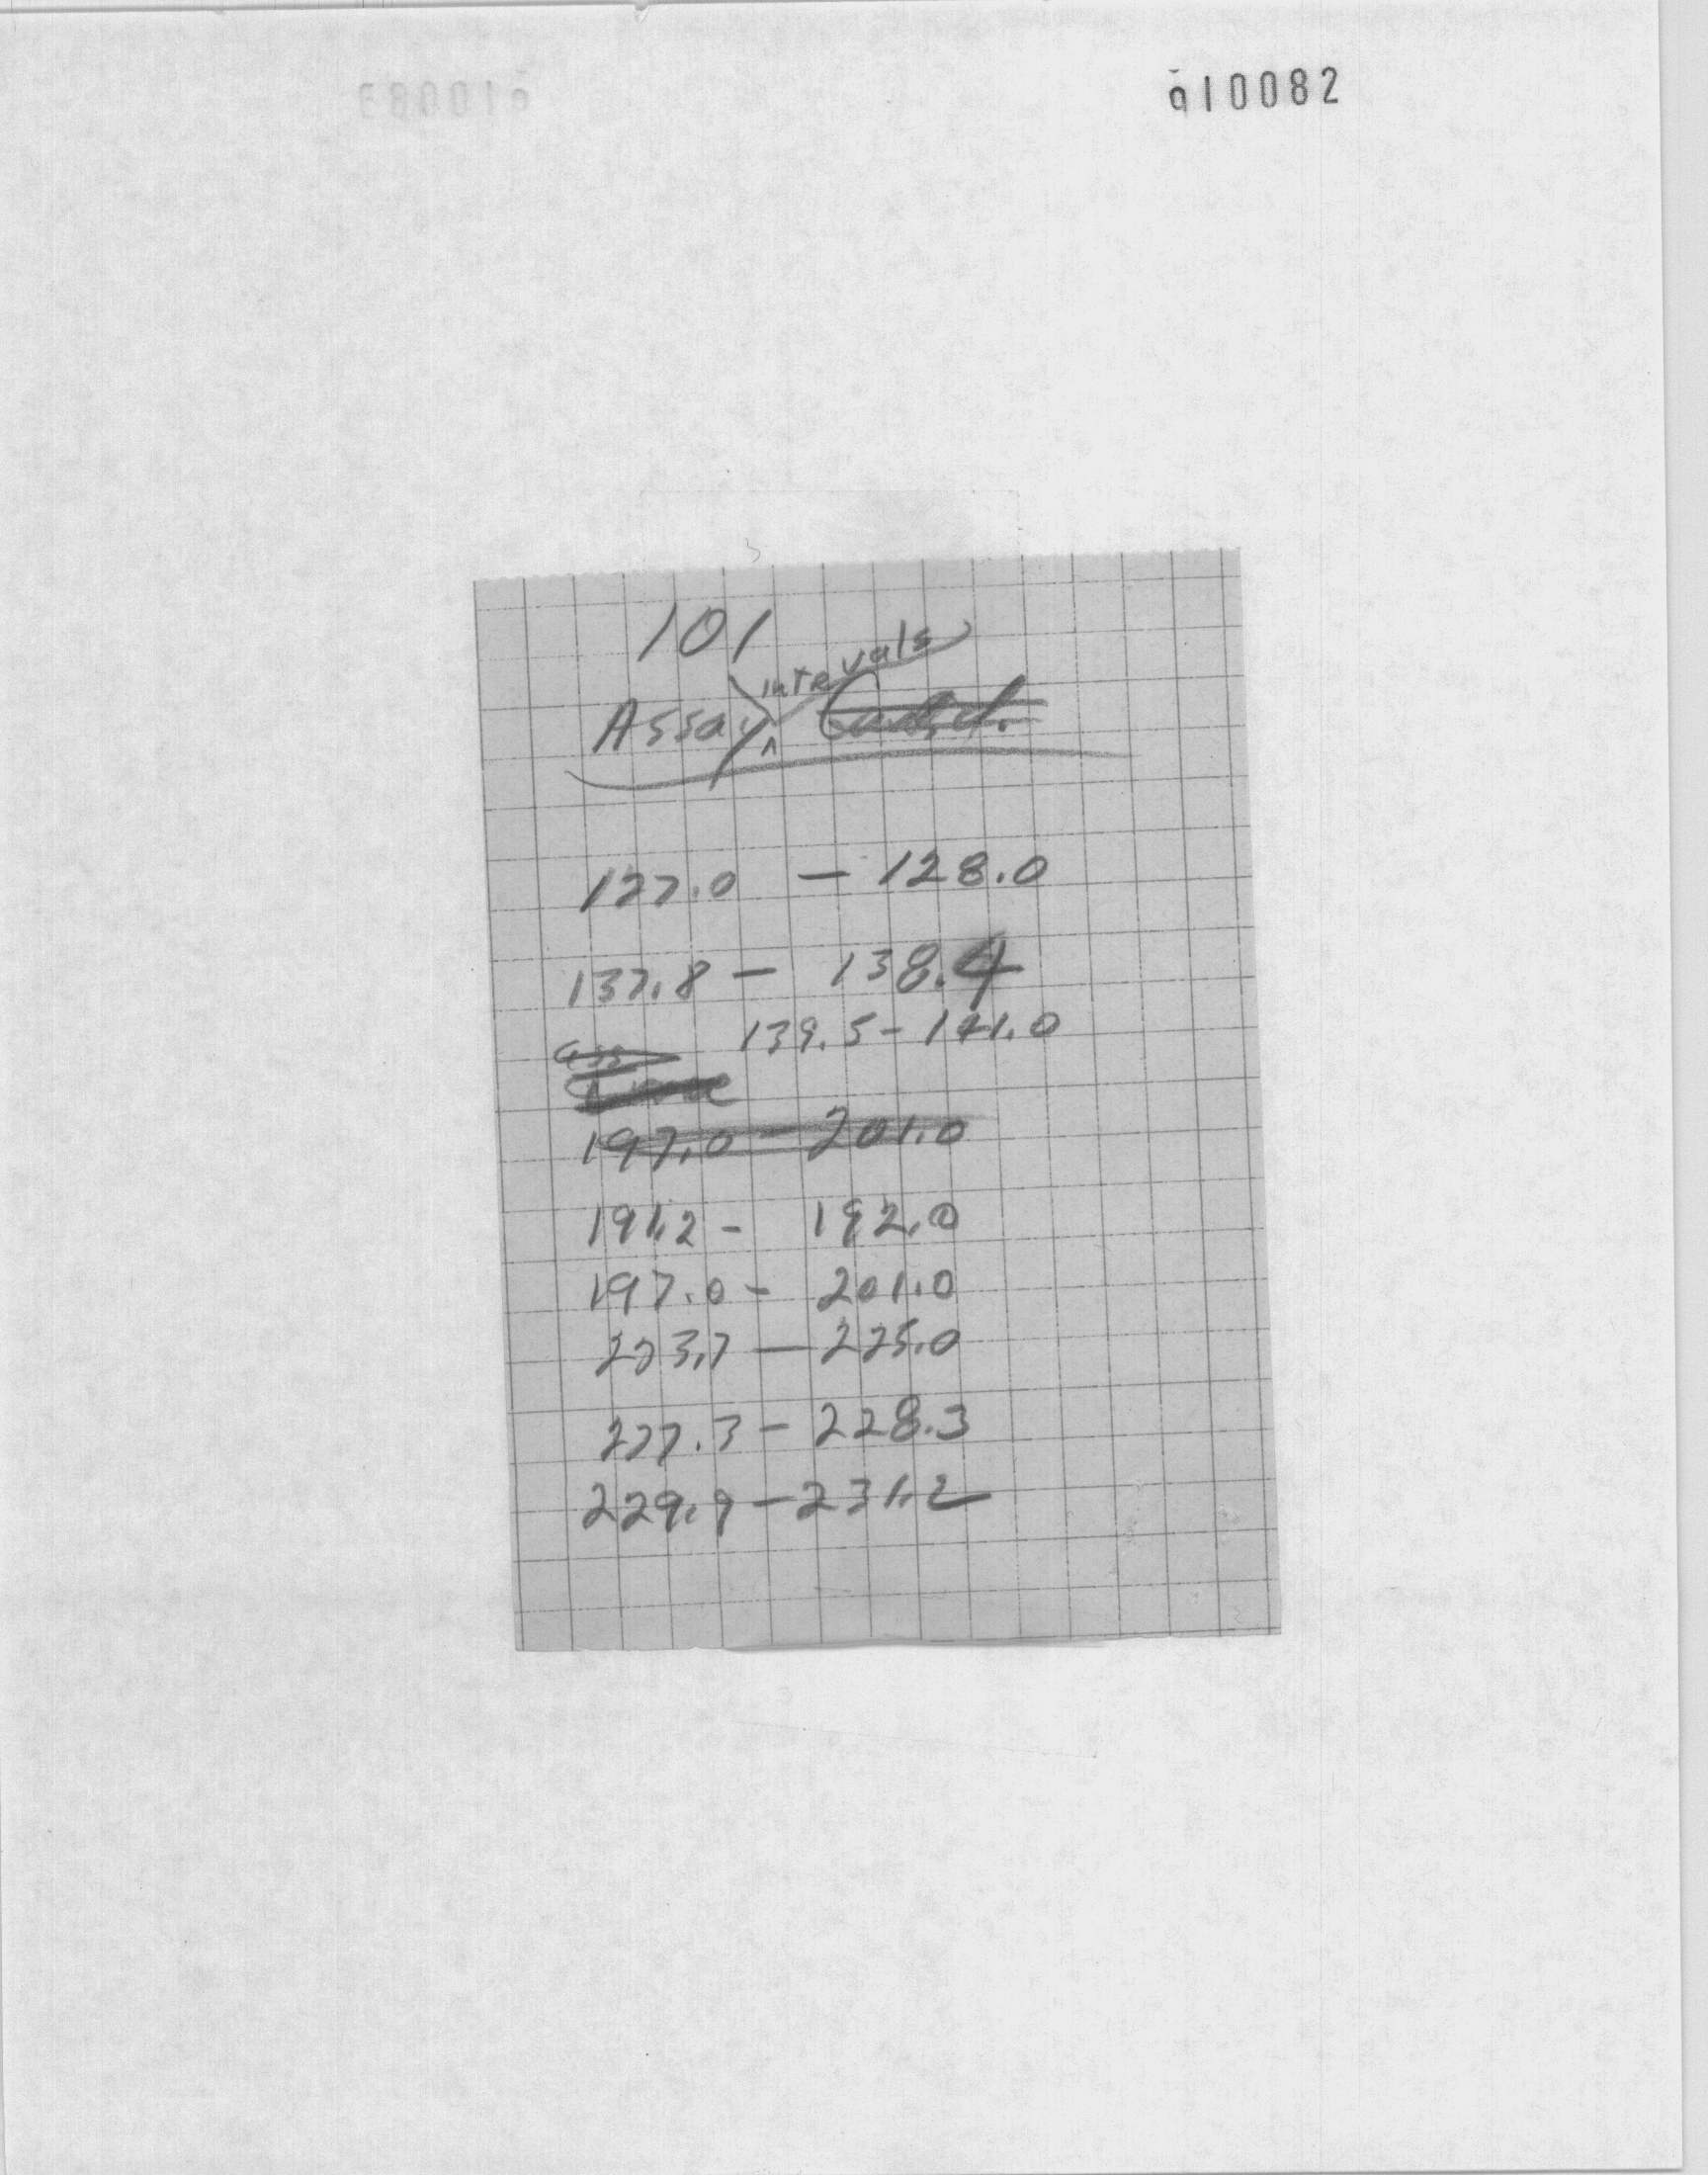 010082
101
Assay intervals
127.0 — 128.0
137.8 — 138.4
139.5 - 141.0
ass
197.0 — 201.0
191.2 - 192.0
197.0 - 201.0
223.7 — 225.0
227.3 - 228.3
229.9 - 231.2